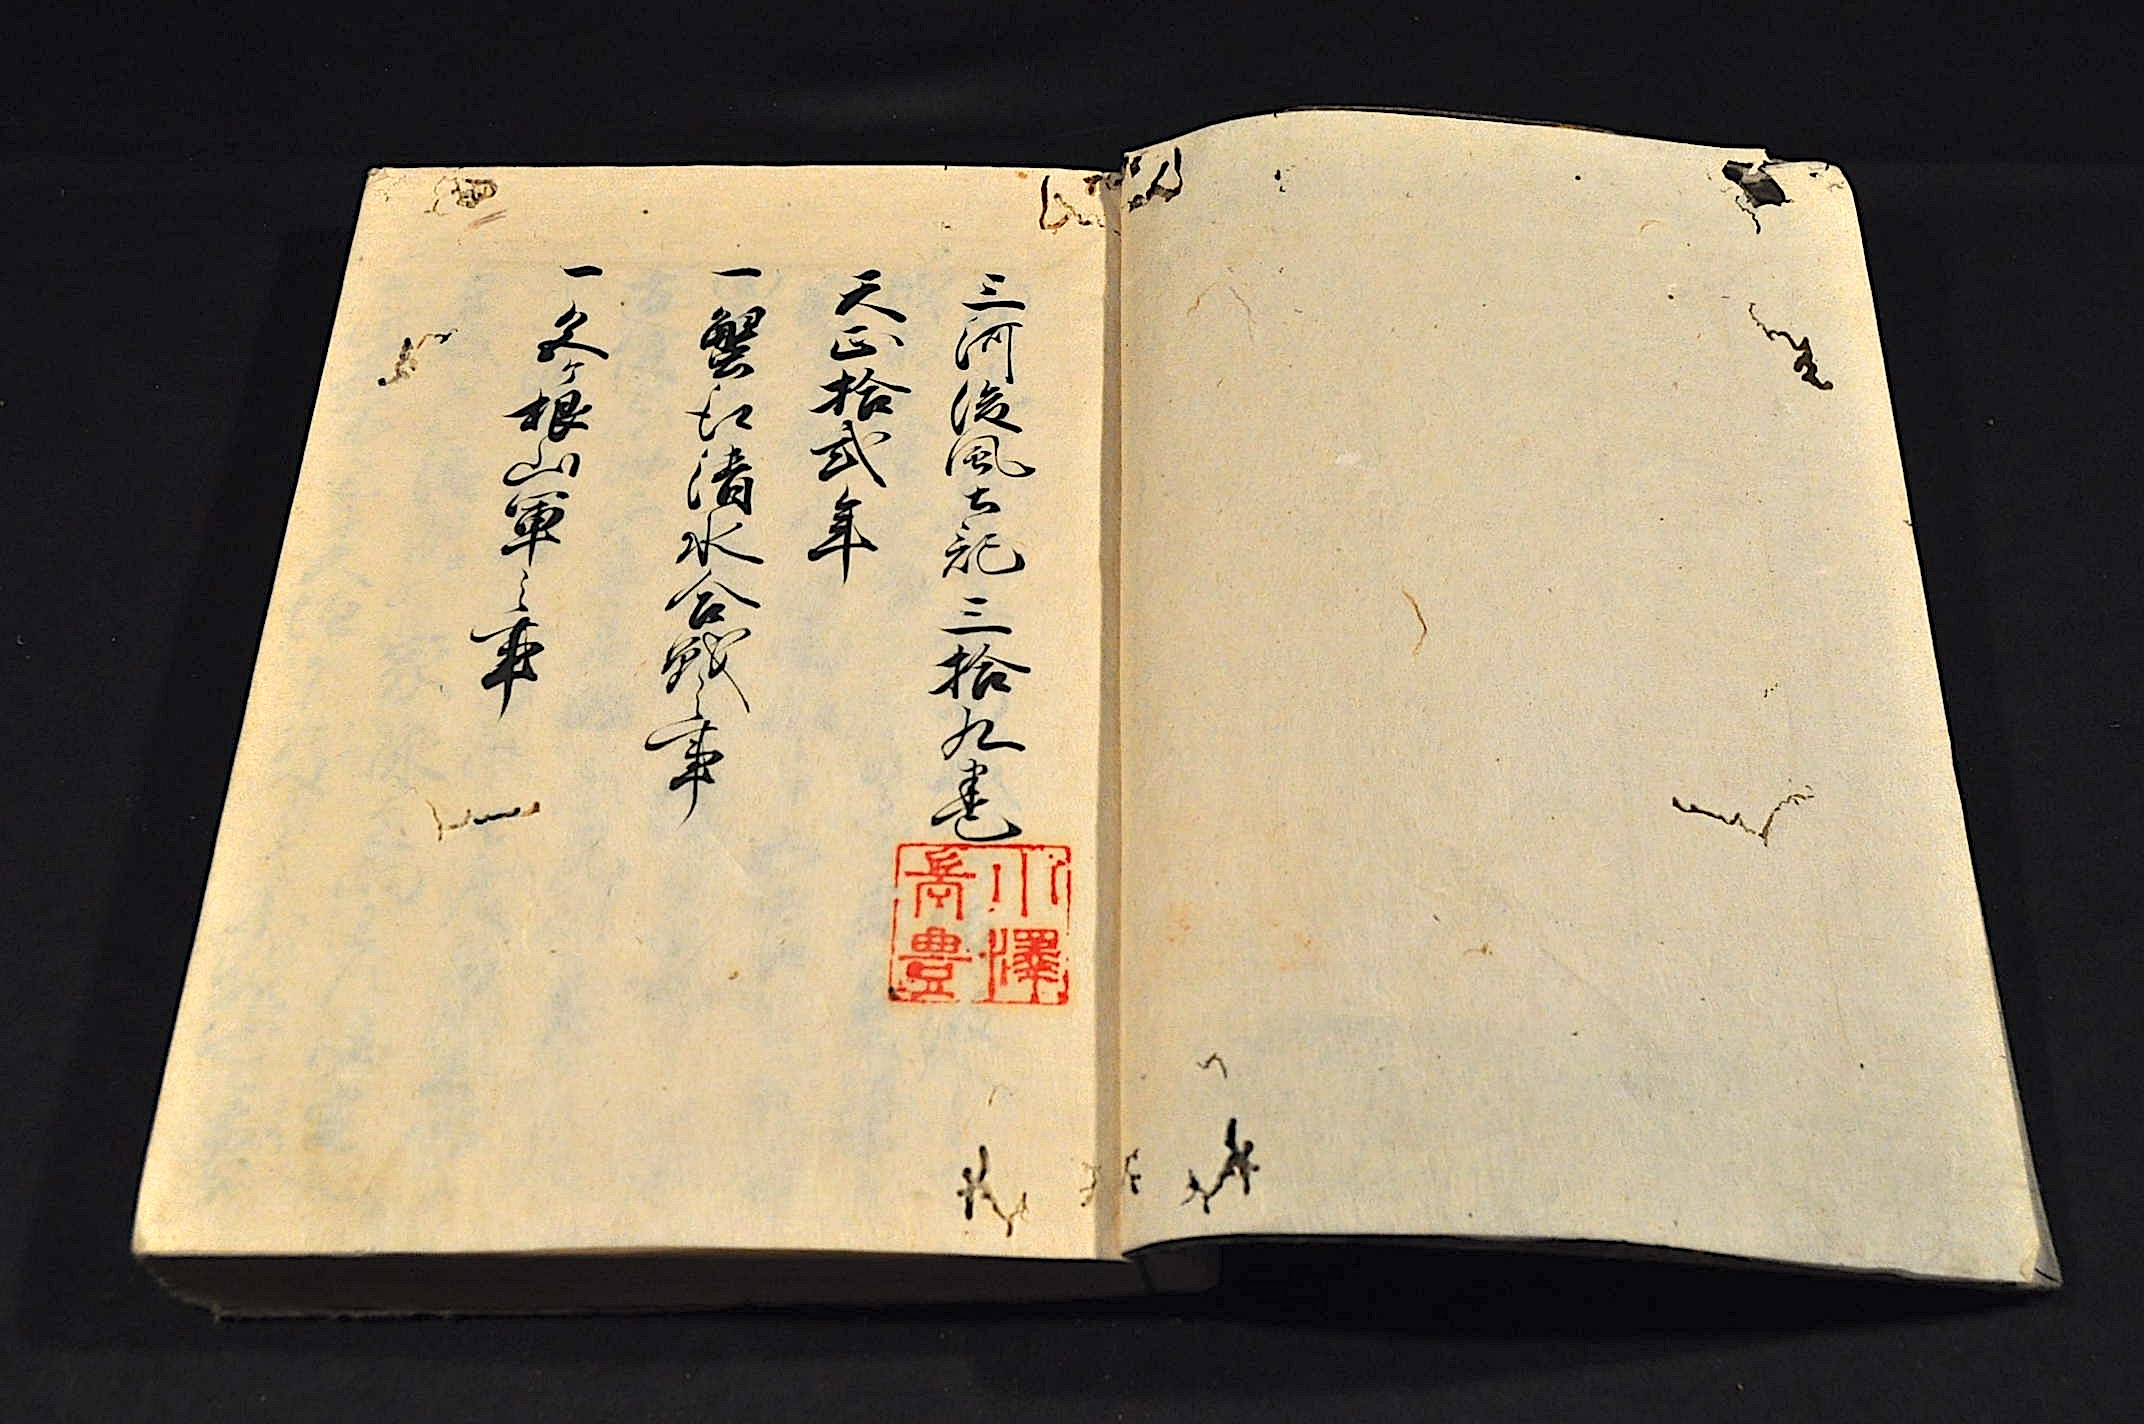 三河後風土記三拾九巻
天正拾弐年
一蟹江清水合戦之事
一久ヶ根山軍之事
小澤
豊